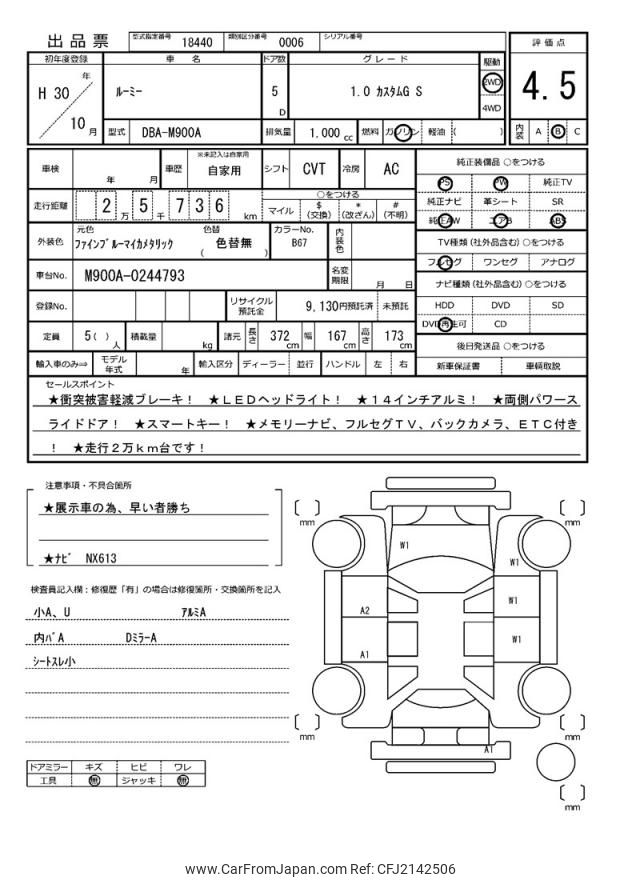 出品票 型式指定番号 18440 類別区分番号 0006 シリアル番号
評価点
4.5
内装 A B C
初年度登録 車名 ドア数 グレード 駆動
H 30 年 10 月
ルーミー
5 D
1.0 カスタムG S
2WD
4WD
型式 DBA-M900A 排気量 1,000 cc 燃料 ガソリン 軽油 ( )
車検 年 月 車歴 ※未記入は自家用 自家用 シフト CVT 冷房 AC
走行距離 2 万 5 千 7 3 6 km
○をつける
マイル $(交換) *(改ざん) #(不明)
外装色 元色 ファインブルーマイカメタリック 色替 色替無 ( ) カラーNo. B67 内装色
車台No. M900A-0244793 名変期限 月 日
登録No. リサイクル預託金 9,130円預託済 未預託
定員 5( ) 人 積載量 kg 諸元 長さ 372 cm 幅 167 cm 高さ 173 cm
輸入車のみ⇒ モデル年式 年 輸入区分 ディーラー 並行 ハンドル 左 右
純正装備品 ○をつける
PS PW 純正TV
純正ナビ 革シート SR
純正AW エアB ABS
TV種類 (社外品含む) ○をつける
フルセグ ワンセグ アナログ
ナビ種類 (社外品含む) ○をつける
HDD DVD SD
DVD再生可 CD
後日発送品 ○をつける
新車保証書 車輌取説
セールスポイント
★衝突被害軽減ブレーキ! ★LEDヘッドライト! ★14インチアルミ! ★両側パワース
ライドドア! ★スマートキー! ★メモリーナビ、フルセグTV、バックカメラ、ETC付き
! ★走行2万km台です!
注意事項・不具合箇所
★展示車の為、早い者勝ち
★ナビ NX613
検査員記入欄:修復歴「有」の場合は修復箇所・交換箇所を記入
小A、U アルミA
内バA DミラーA
シートスレ小
ドアミラー キズ ヒビ ワレ
工具 無 ジャッキ 無
[ ] mm
[ ] mm
W1
W1
A2
W1
A1
W1
[ ] mm
[ ] mm
A1
[ ] mm
www.CarFromJapan.com Ref: CFJ2142506